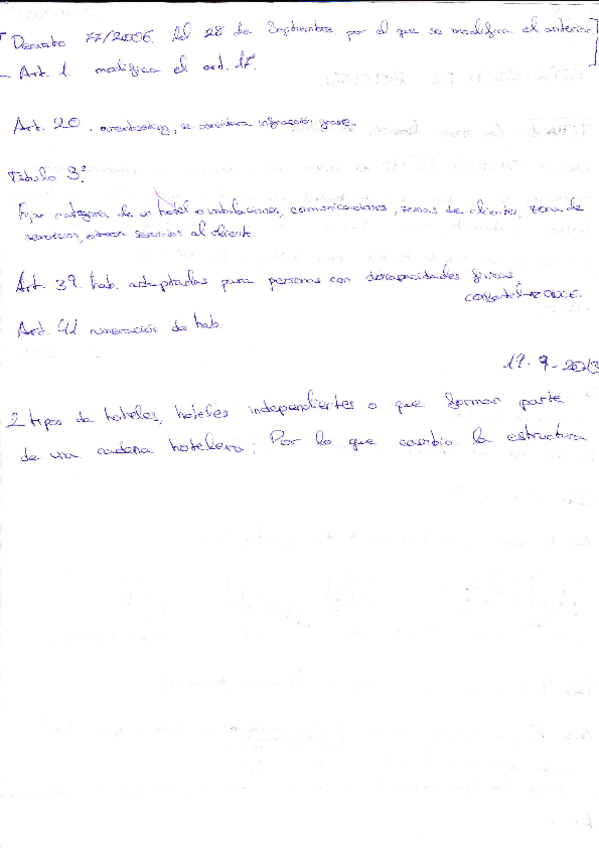 [Decreto 77/2006. del 28 de Septiembre por el que se modifica el anterior]
- Art. 1. modifica el art. 17.
Art. 20. overbooking, se considera infracción grave.
Título 3º
Fijar categoría de un hotel instalaciones, comunicaciones, zonas de clientes, zona de
servicios, otros servicios al cliente.
Art. 39. hab. adaptadas para personas con discapacidades físicas,
ONCE.
Art. 41 numeración de hab.
19-9-2013
2 tipos de hoteles, hoteles independientes o que forman parte
de una cadena hotelera; Por lo que cambio la estructura